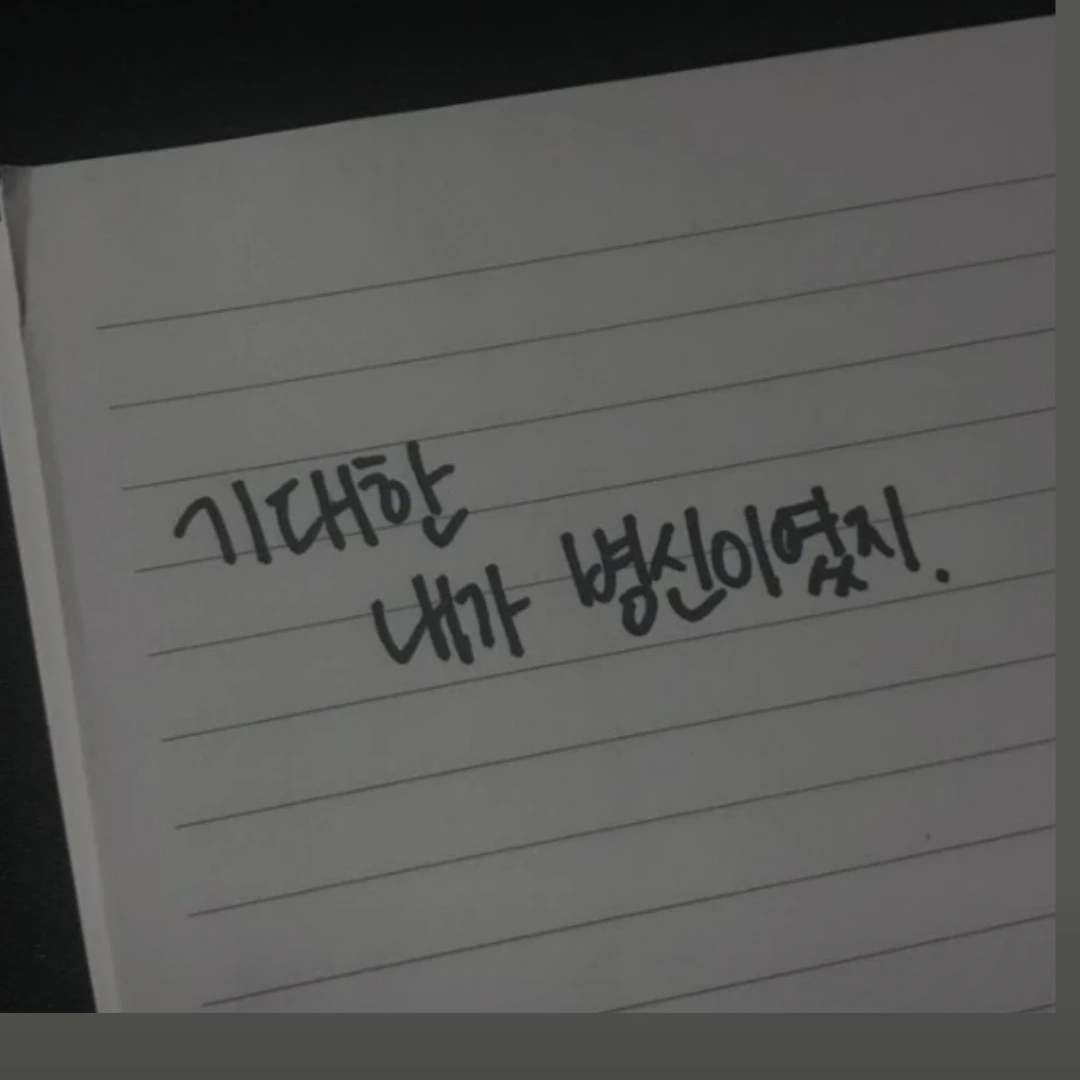 기대한
내가 병신이였지.